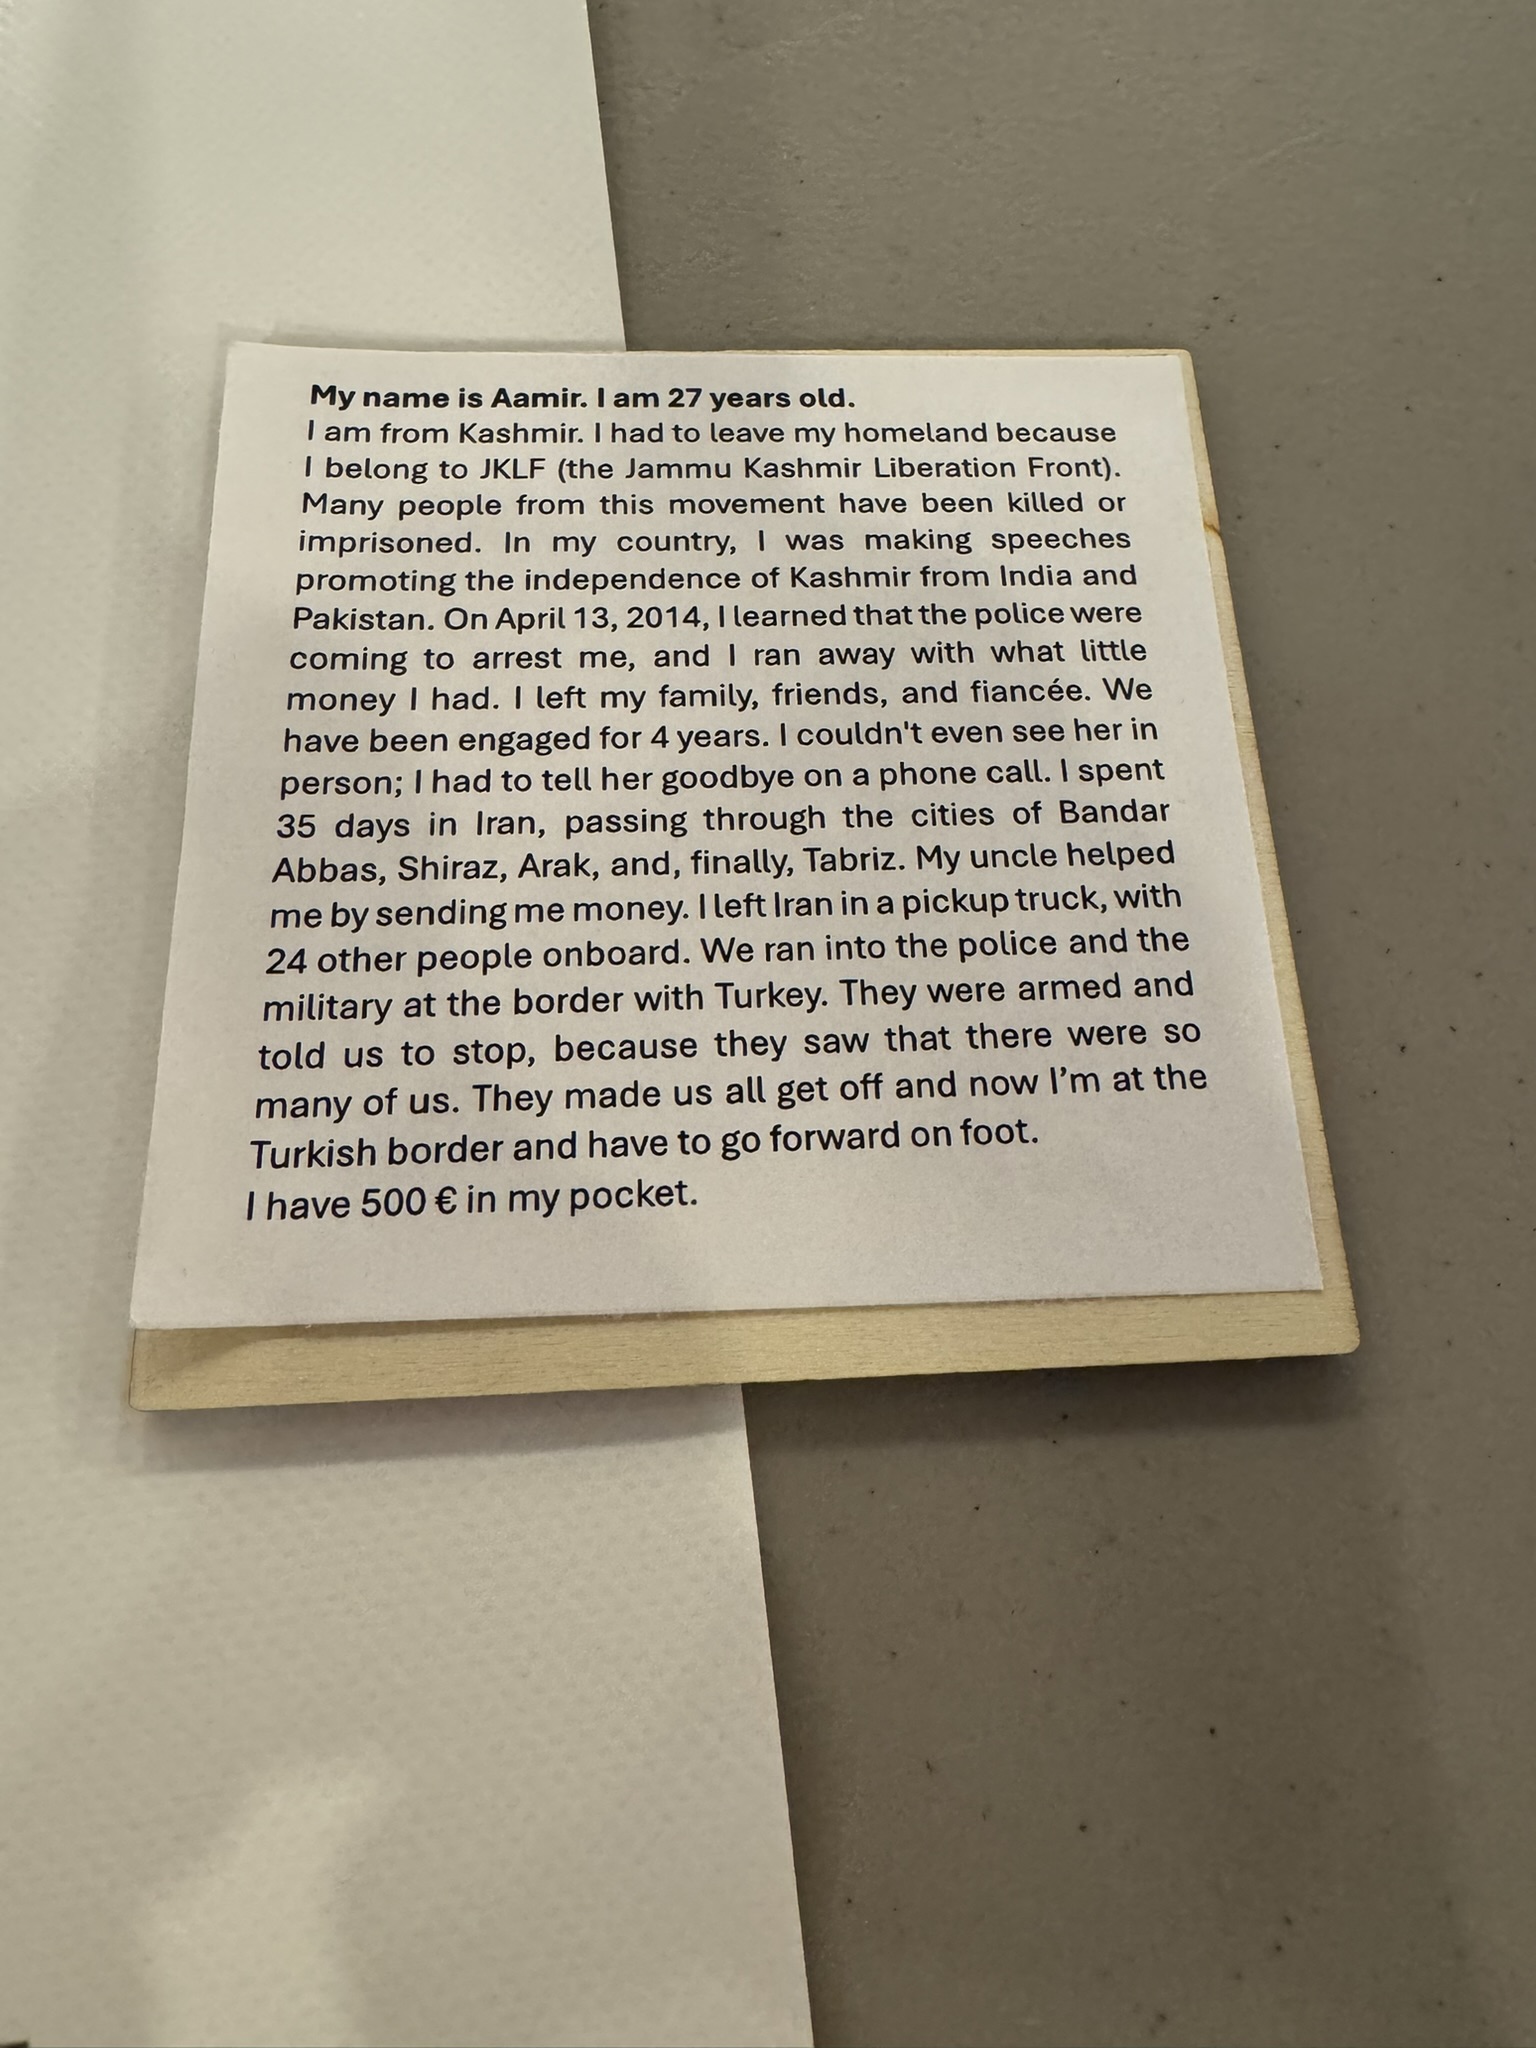 My name is Aamir. I am 27 years old.
I am from Kashmir. I had to leave my homeland because
I belong to JKLF (the Jammu Kashmir Liberation Front).
Many people from this movement have been killed or
imprisoned. In my country, I was making speeches
promoting the independence of Kashmir from India and
Pakistan. On April 13, 2014, I learned that the police were
coming to arrest me, and I ran away with what little
money I had. I left my family, friends, and fiancée. We
have been engaged for 4 years. I couldn't even see her in
person; I had to tell her goodbye on a phone call. I spent
35 days in Iran, passing through the cities of Bandar
Abbas, Shiraz, Arak, and, finally, Tabriz. My uncle helped
me by sending me money. I left Iran in a pickup truck, with
24 other people onboard. We ran into the police and the
military at the border with Turkey. They were armed and
told us to stop, because they saw that there were so
many of us. They made us all get off and now I’m at the
Turkish border and have to go forward on foot.
I have 500 € in my pocket.